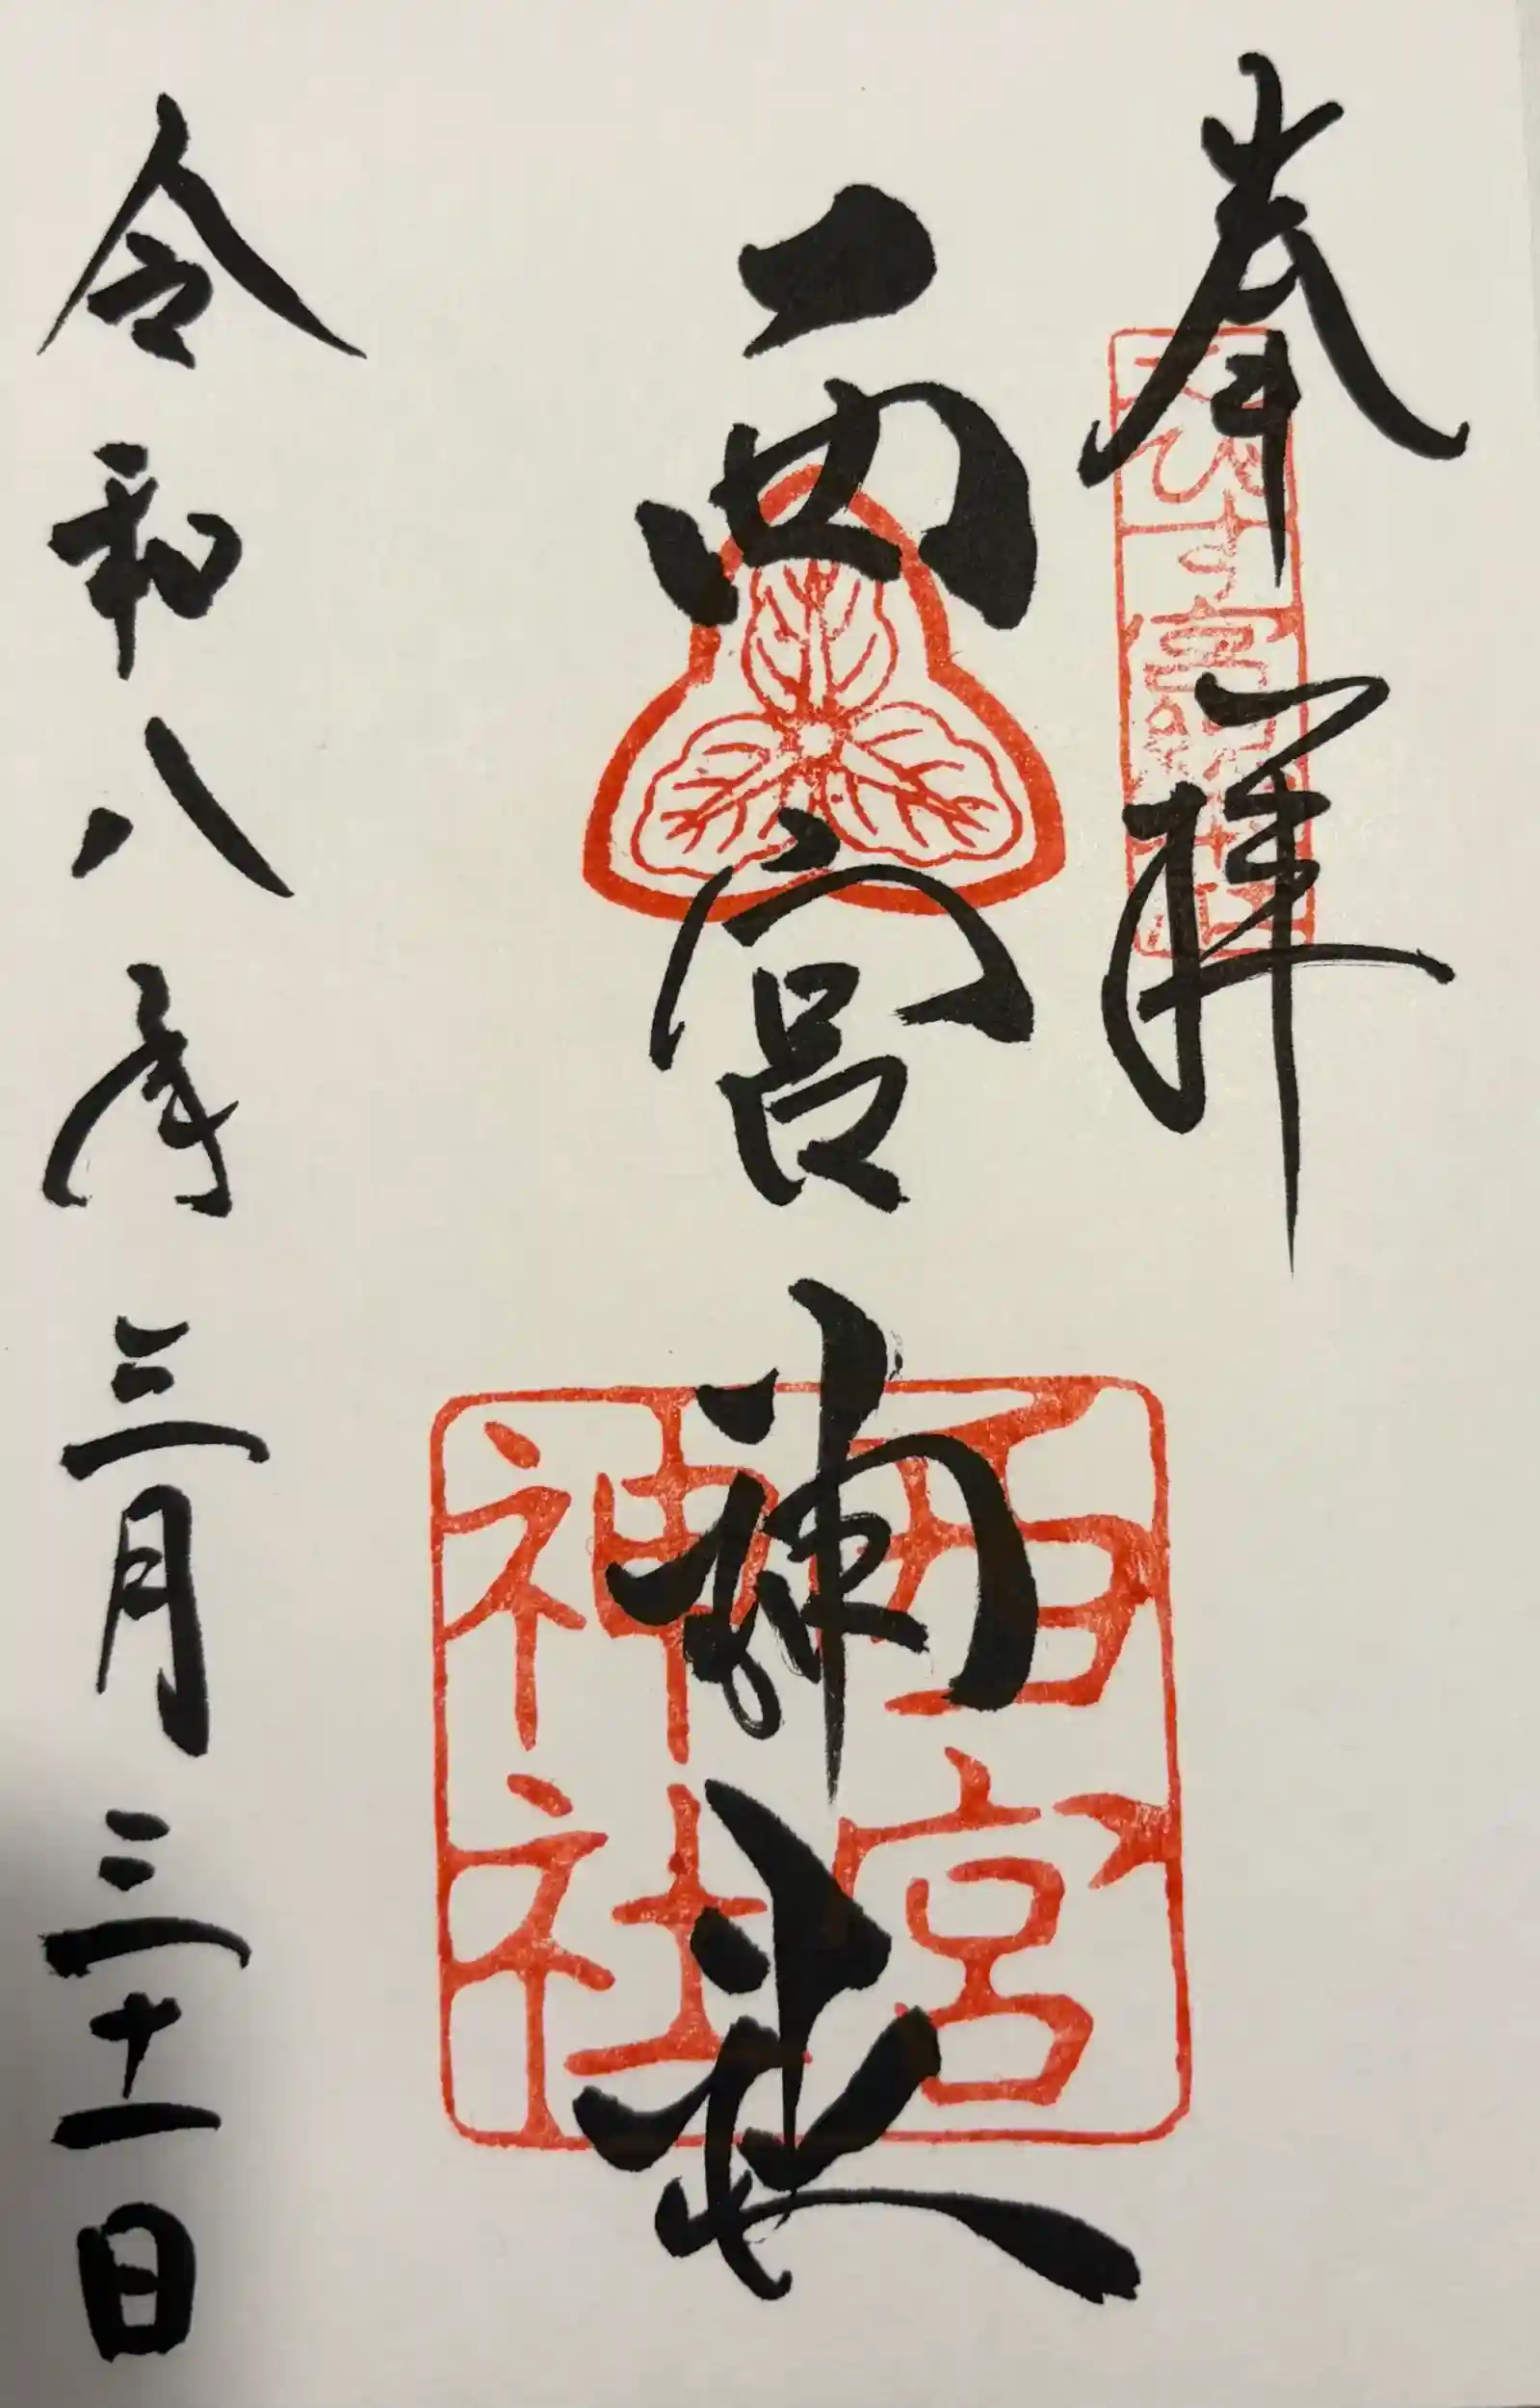 奉拝
えびす宮総本社
西宮
西宮
神社
令和八年三月三十一日